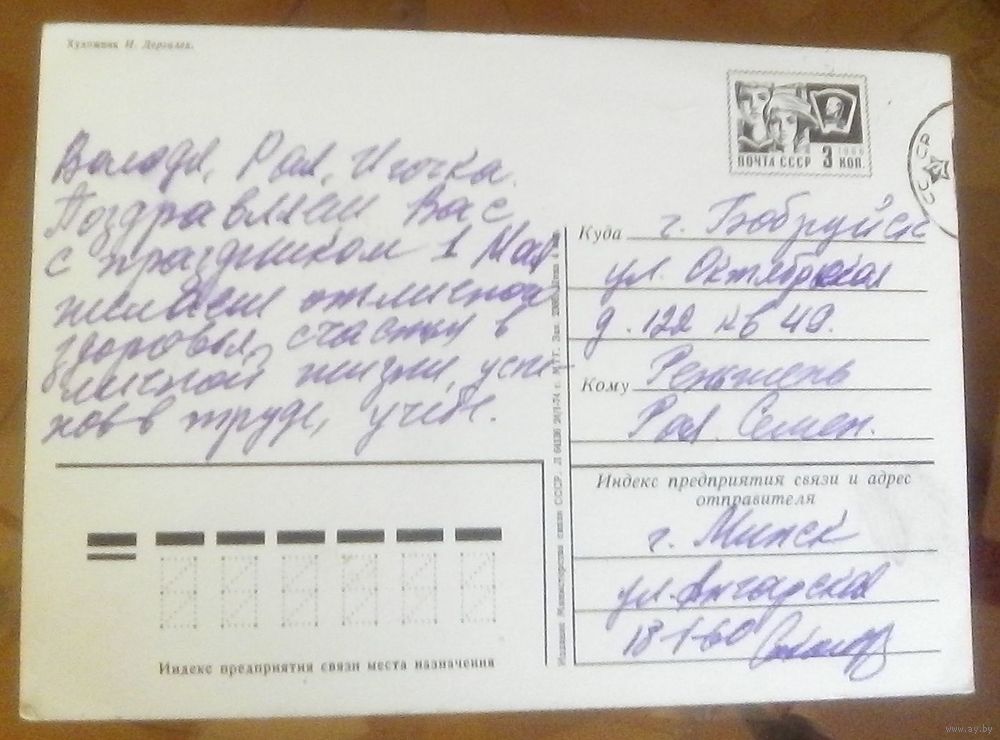 Художник И. Дергилев.
ПОЧТА СССР 3 КОП.
1966
СССР
Володя, Рая, Игочка.
Поздравляем Вас
с праздником 1 Мая
желаем отличного
здоровья, счастья в
личной жизни, успе-
хов в труде, учебе.
Куда г. Бобруйск
ул. Октябрьская
д. 122 кв 49.
Кому
Рая. Семен.
Индекс предприятия связи и адрес
отправителя
г. Минск
ул. Ангарская
18-1-60
Издание Министерства связи СССР.
Индекс предприятия связи места назначения
www.ay.by